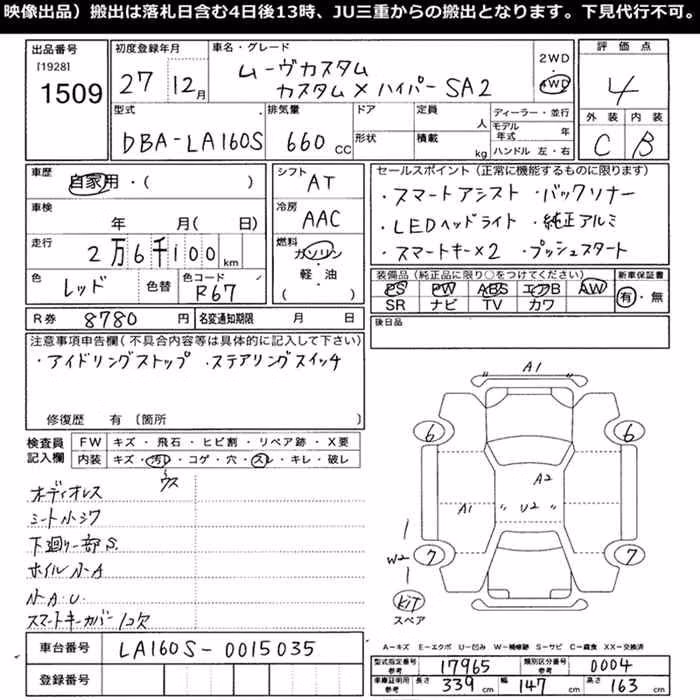 映像出品）搬出は落札日含む4日後13時、JU三重からの搬出となります。下見代行不可。
出品番号
[1928]
1509
初度登録年月
27 12月
車名・グレード
ムーヴカスタム
カスタムXハイパーSA2
2WD
4WD
評価点
4
外装 内装
C B
型式
DBA-LA160S
排気量
660 CC
ドア
形状
定員
人
積載
kg
ディーラー・並行
モデル年式 年
ハンドル 左・右
車歴
自家用・( )
車検
年 月( 日)
走行
2万6千100 km
色
レッド
色替
色コード
R67
シフト
AT
冷房
AAC
燃料
ガソリン
・
軽・油
( )
セールスポイント（正常に機能するものに限ります）
・スマートアシスト ・バックソナー
・LEDヘッドライト ・純正アルミ
・スマートキー×2 ・プッシュスタート
装備品（純正品に限り○をつけてください）
PS PW ABS エアB AW
SR ナビ TV カワ
新車保証書
有・無
R券 8780 円
名変通知期限 月 日
後日品
注意事項申告欄（不具合内容等は具体的に記入して下さい）
・アイドリングストップ ・ステアリングスイッチ
修復歴 有〔箇所 〕
検査員
記入欄
FW キズ・飛石・ヒビ割・リペア跡・X要
内装 キズ・汚レ・コゲ・穴・スレ・キレ・破レ
ウス
オーディオレス
シート小シワ
下廻リ一部S.
ホイル小A
小A.U.
スマートキーカバー1コ欠
A1
6 6
A2
A1 U2
W2 7 7
KIT
スペア
車台番号 LA160S-0015035
登録番号
A－キズ E－エクボ U－凹み W－補修跡 S－サビ C－腐食 XX－交換済
型式指定番号
参考
17965
類別区分番号
参考
0004
車庫証明用
参考
長さ 339 cm 幅 147 cm 高さ 163 cm